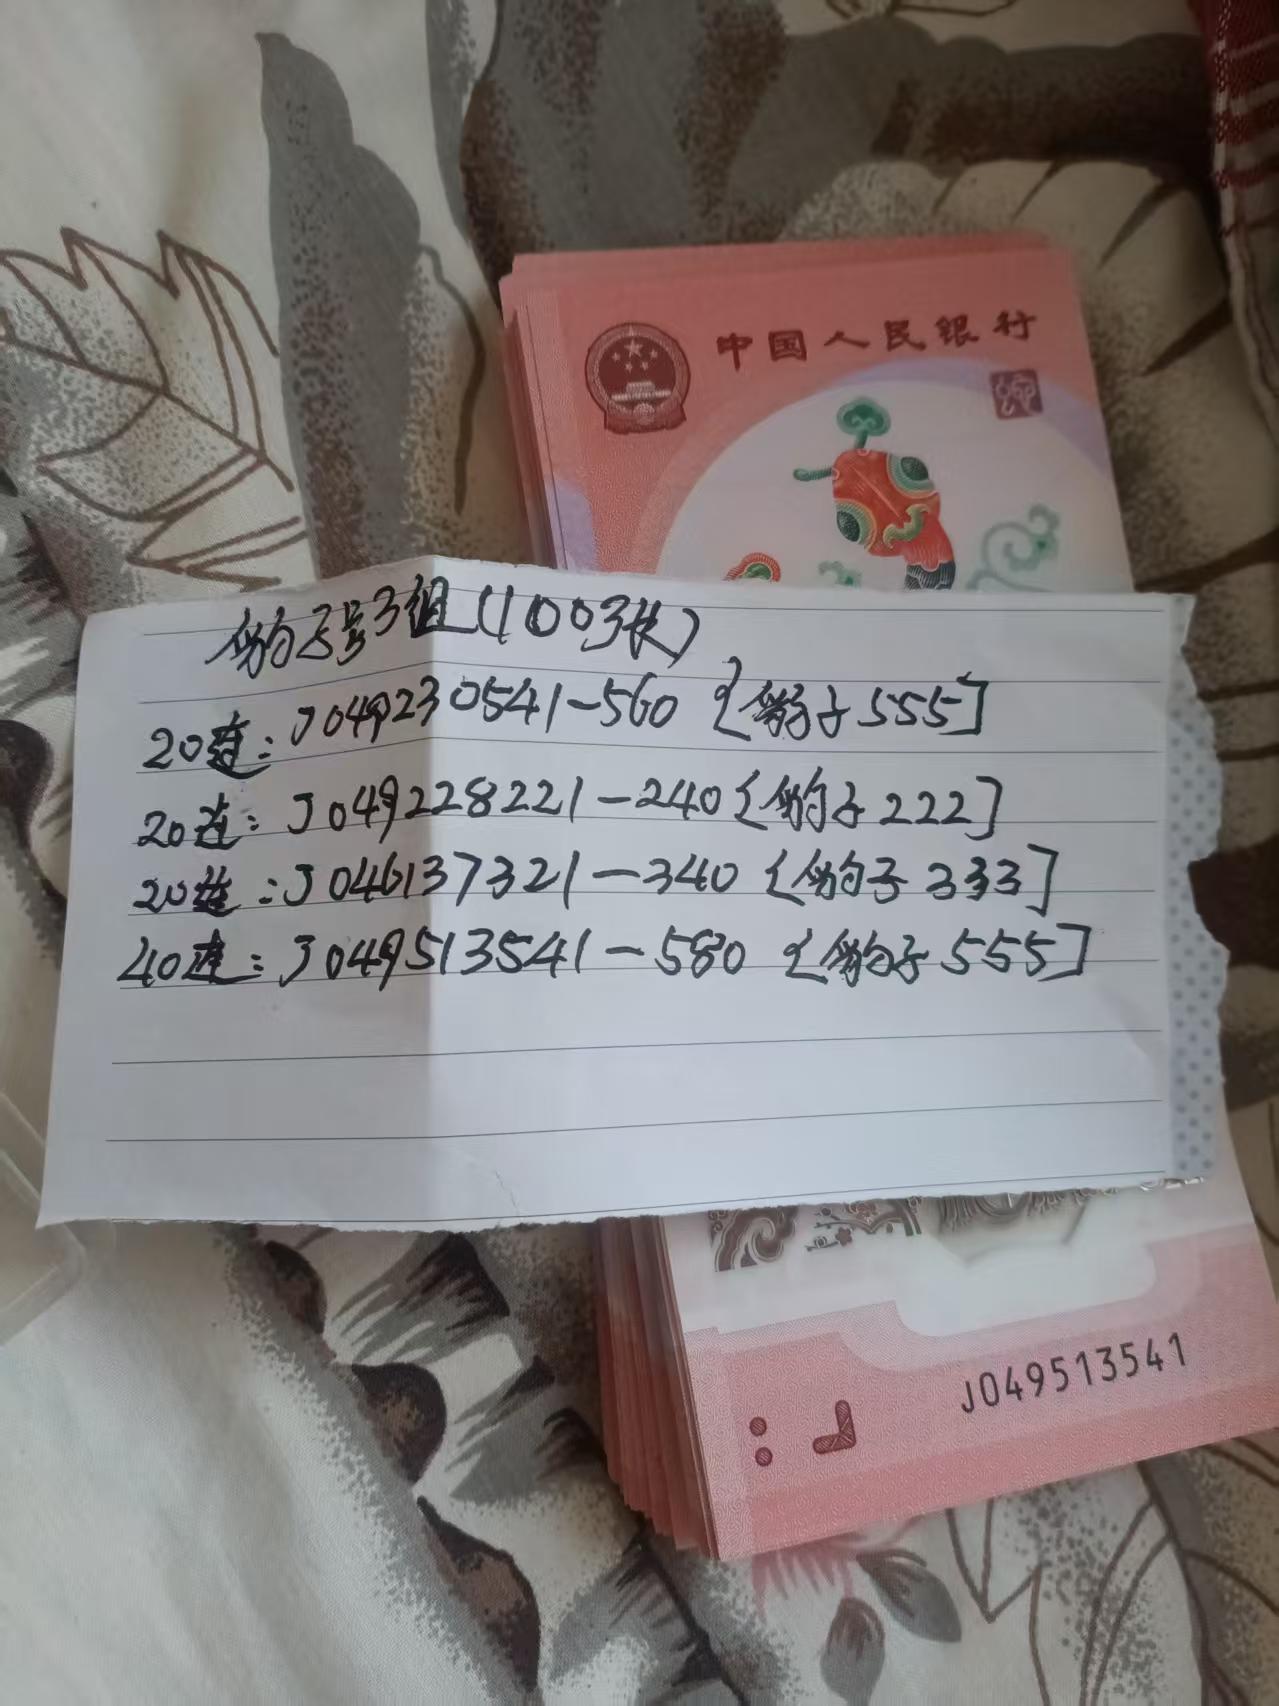 中国人民银行
豹子号3组(100张)
20连:J049230541-560{豹子555]
20连:J049228221-240{豹子222]
20连:J046137321-340{豹子333]
40连:J049513541-580{豹子555]
J049513541